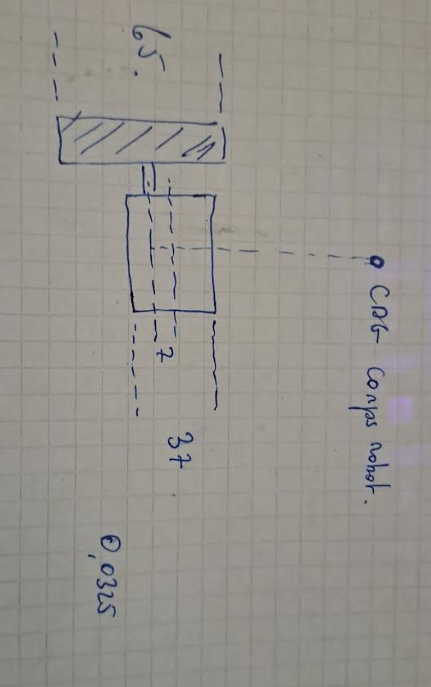 65.
CAG corps robot.
7
37
0,0325